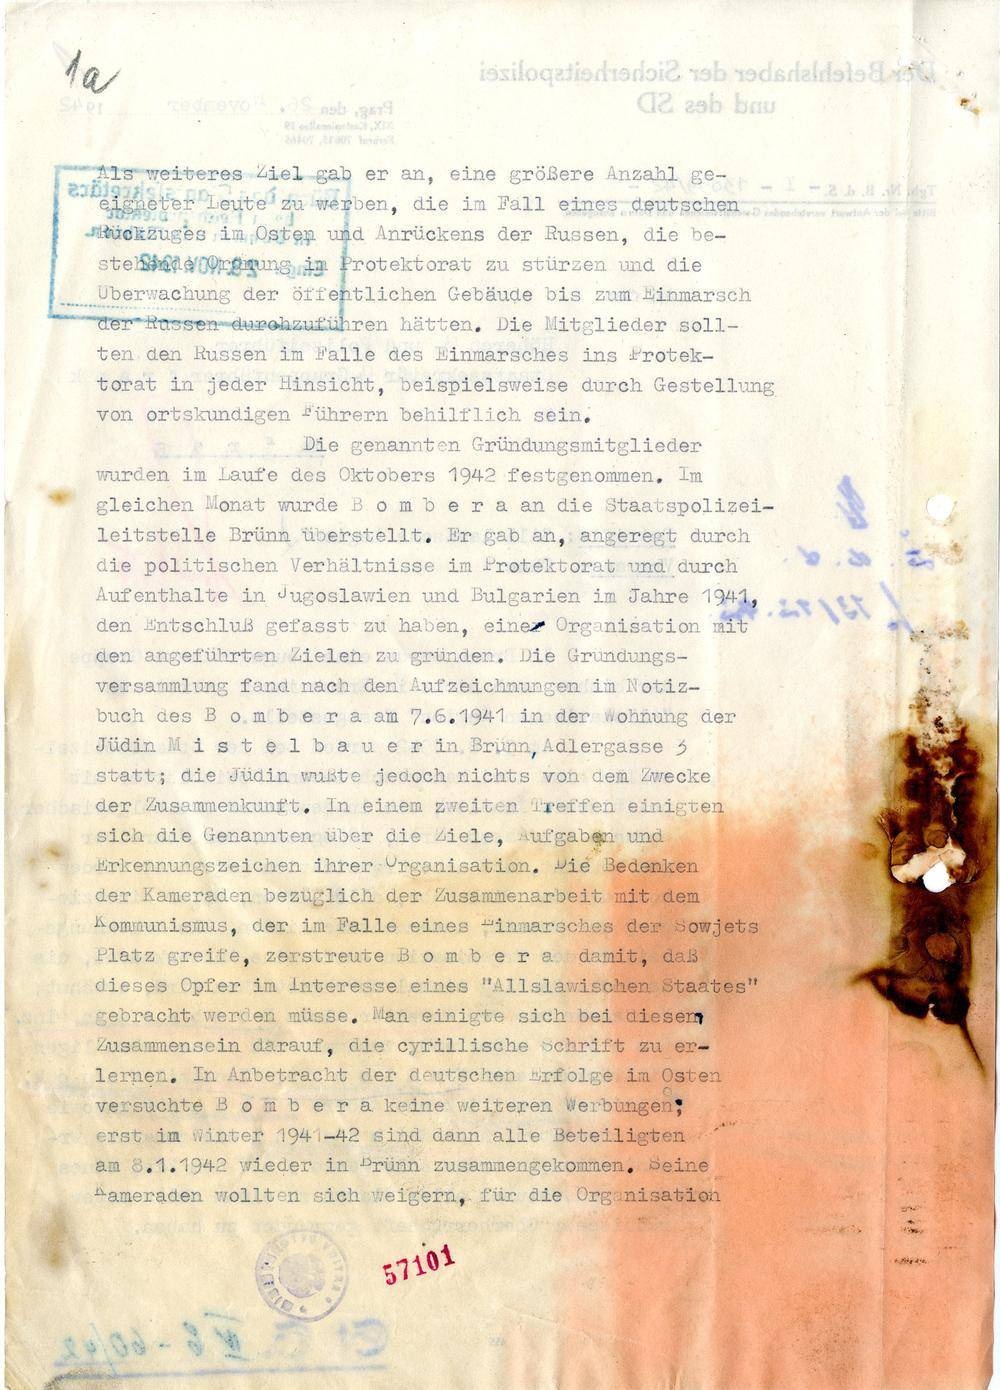 1a
Als weiteres Ziel gab er an, eine größere Anzahl ge-
eigneter Leute zu werben, die im Fall eines deutschen
Rückzuges im Osten und Anrückens der Russen, die be-
stehende Ordnung im Protektorat zu stürzen und die
Überwachung der öffentlichen Gebäude bis zum Einmarsch
der Russen durchzuführen hätten. Die Mitglieder soll-
ten den Russen im Falle des Einmarsches ins Protek-
torat in jeder Hinsicht, beispielsweise durch Gestellung
von ortskundigen Führern behilflich sein.
Die genannten Gründungsmitglieder
wurden im Laufe des Oktobers 1942 festgenommen. Im
gleichen Monat wurde B o m b e r a an die Staatspolizei-
leitstelle Brünn überstellt. Er gab an, angeregt durch
die politischen Verhältnisse im Protektorat und durch
Aufenthalte in Jugoslawien und Bulgarien im Jahre 1941,
den Entschluß gefasst zu haben, eine Organisation mit
den angeführten Zielen zu gründen. Die Gründungs-
versammlung fand nach den Aufzeichnungen im Notiz-
buch des B o m b e r a am 7.6.1941 in der Wohnung der
Jüdin M i s t e l b a u e r in Brünn, Adlergasse 3
statt; die Jüdin wußte jedoch nichts von dem Zwecke
der Zusammenkunft. In einem zweiten Treffen einigten
sich die Genannten über die Ziele, Aufgaben und
Erkennungszeichen ihrer Organisation. Die Bedenken
der Kameraden bezüglich der Zusammenarbeit mit dem
Kommunismus, der im Falle eines Einmarsches der Sowjets
Platz greife, zerstreute B o m b e r a damit, daß
dieses Opfer im Interesse eines "Allslawischen Staates"
gebracht werden müsse. Man einigte sich bei diesem
Zusammensein darauf, die cyrillische Schrift zu er-
lernen. In Anbetracht der deutschen Erfolge im Osten
versuchte B o m b e r a keine weiteren Werbungen;
erst im Winter 1941-42 sind dann alle Beteiligten
am 8.1.1942 wieder in Brünn zusammengekommen. Seine
Kameraden wollten sich weigern, für die Organisation
57101